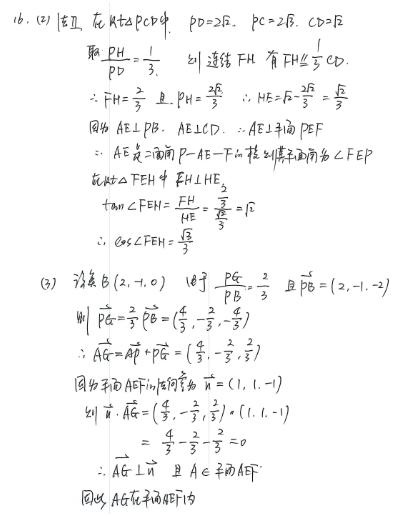 16. (2) 法II 在Rt△PCD中. PD=2√2. PC=2√3. CD=√2
取 PH/PD = 1/3. 则连结FH 有FH∥= 1/3 CD.
∴ FH= 2/3 且PH= 2√2/3 ∴ HE=√2- 2√2/3 = √2/3
因为 AE⊥PB. AE⊥CD. ∴AE⊥平面PEF
∴ AE是二面角P-AE-F的棱 则其平面角为∠FEP
在Rt△FEH中 FH⊥HE
tan∠FEH= FH/HE = (2/3)/(√2/3) =√2
∴ cos∠FEH= √3/3
(3) 易知 B(2,-1,0) 由于 PG/PB = 2/3 且PB=(2,-1,-2)
则 PG= 2/3 PB=(4/3,-2/3,-4/3)
∴ AG=AP+PG=(4/3,-2/3,2/3)
因为平面AEF的法向量为 n=(1,1,-1)
则 n·AG=(4/3,-2/3,2/3)·(1,1,-1)
= 4/3-2/3-2/3=0
∴ AG⊥n 且A∈平面AEF
因此 AG在平面AEF内